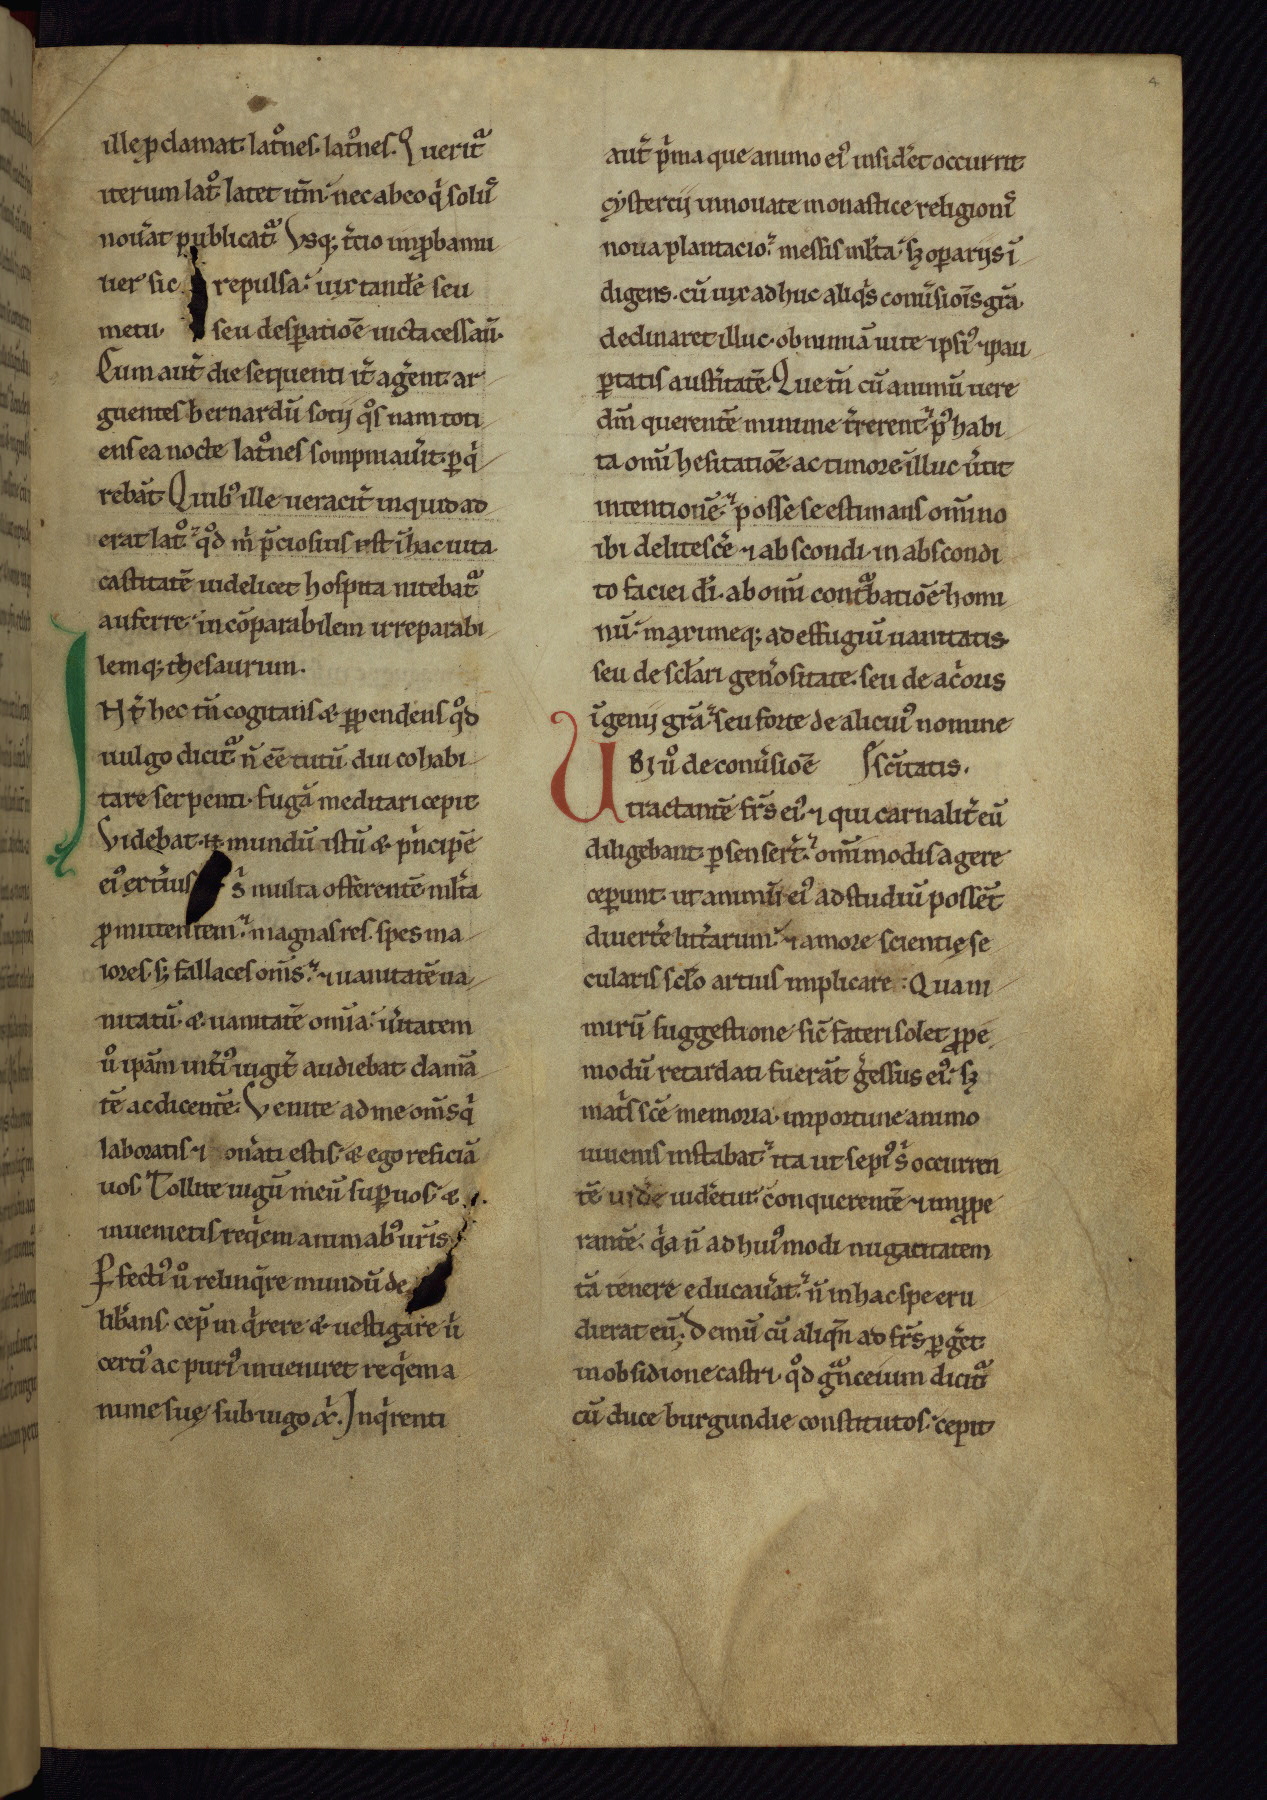 ille ꝓclamat. lat͛ones. lat͛ones. Queritᷓ
iterum lat͛o. latet it̄m. nec ab eo qͥ solꝰ
nou̾at publicatᷓ. Vsq; t̾cio imp̱bamu
lier sic repulsa. uix tandē seu
metu seu desꝑatiōe uicta cessauͥ.
Cum aut̄ die sequenti it̄ aḡent. ar
guentes bernardū sotij qͦs nam toti
ens ea nocte lat͛ones sompniau̾it ꝑqͥ
rebāt. Quibꝰ ille ueracit̄ inquid ad
erat lat͛o. qͦd m̄ p̄ciosius est ī hac uita
castitatē uidelicet hospita nitebatᷓ
auferre. incōparabilem irreparabi
lemq; thesaurum.
hec tn̄ cogitans & ꝑpendens qͦd
uulgo dicitᷓ n̄ eē tutū diu cohabi
tare serpenti. fugā meditari cepit
Videbat mundū istū & p̄ncipē
eiꝰ ext̾ius s̄ multa offerentē ml̄ta
ꝓmittentem. magnas res. spes ma
iores. sꝫ fallaces om̄s. ⁊ uanitatē ua
nitatū. & uanitatē om̄ia. u̾itatem
u̾o ip̄am int̾iꝰ iugit̄ audiebat clamā
tē ac dicentē. Venite ad me om̄s qͥ
laboratis ⁊ on̾ati estis. & ego reficiā
uos. Tollite iugū meū suꝑ uos. &
inuenietis reqͥem animabꝰ ur̄is
Ꝑfectiꝰ u̾o relinq̄re mundū de
lib̾ans. cep̄ inqͥrere & uestigare u̾
certiꝰ ac puriꝰ inueniret reqͥem a
nime suę sub iugo xͥ. Inqͥrenti
aut̄ pͥma que animo eiꝰ insid̾et occurrit
cystercij innouate monastice religioniˢ
noua plantacio. messis ml̄ta. sꝫ oꝑarijs ī
digens. cū uix adhuc aliqͥs conu̾sioīs grā.
declinaret illuc. ob nimiā uite ipsiꝰ ⁊ pau
ꝑtatis aust̾itatē. Que tn̄ cū animū uere
dm̄ querentē minime t̾rerent pͦ habi
ta om̄i hesitatiōe ac timore illuc u̾tit
intentionē. posse se estimans om̄ino
ibi delitesc̾e ⁊ abscondi. in abscondi
to faciei di̾. ab om̄i conturbatiōe homi
nū. maximeq; ad effugiū uanitatis
seu de sclari gen̾ositate. seu de ac̾oris
īgenij grā. seu forte de alicuiꝰ nomine
UBI u̾o de conu̾siōe sc̄itatis.
tractantē fr̄s eiꝰ. ⁊ qui carnalit̄ eū
diligebant ꝑsenser̄t. om̄imodis agere
ceꝑunt. ut animū eiꝰ ad studiū possēt
diuert̾e litt̾arum. ⁊ amore scientię se
cularis sclo artius implicare. Quam
mirū suggestione sic̄ fateri solet ꝓpe
modū retardati fuerāt gͥessus eiꝰ. sꝫ
mat̾s scē memoria. importune animo
iuuenis instabat. ita ut sepiꝰ s̾ occurren
tē uide uid̾etur. conquerentē ⁊ imꝓpe
rantē. qͥa n̄ ad huiꝰmodi nugacitatem
tā tenere educau̾at. n̄ in hac spe eru
dierat eū. Demū cū aliqn̄ ad fr̄s ꝑg̾et
in obsidione castri. qͦd gᷓnceium dicitᷓ
cū duce burgundie constitutos. cepit